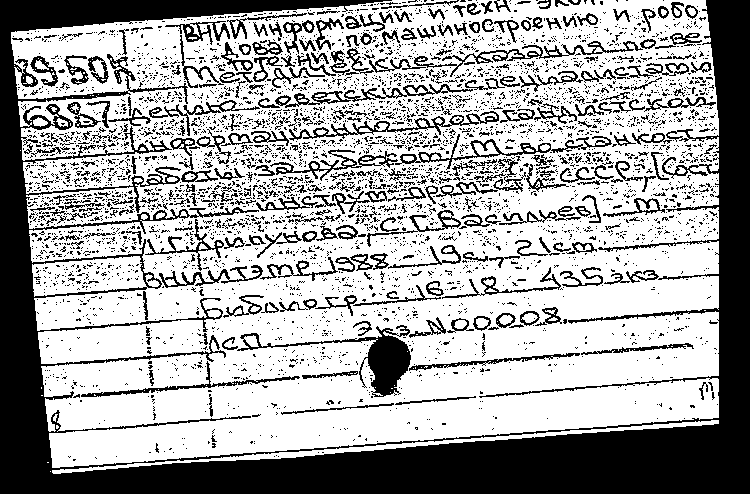 ВНИИ информации и техн.-экон.
дований по машиностроению и робо-
тотехнике.
89-50К Методические указания по ве-
6887 дению советскими специалистами
информационно пропагандистской
работы за рубежом / М-во станкост-
роит. и инструм. пром-сти СССР; [Сост.
Л.Г. Хрипунова, С.Г. Васильев]. - М.:
ВНИИТЭМР, 1988. - 19с.; 21см.
Библиогр.: с. 16-18. - 435 экз.
ДСП. Экз. N00008.
8 М